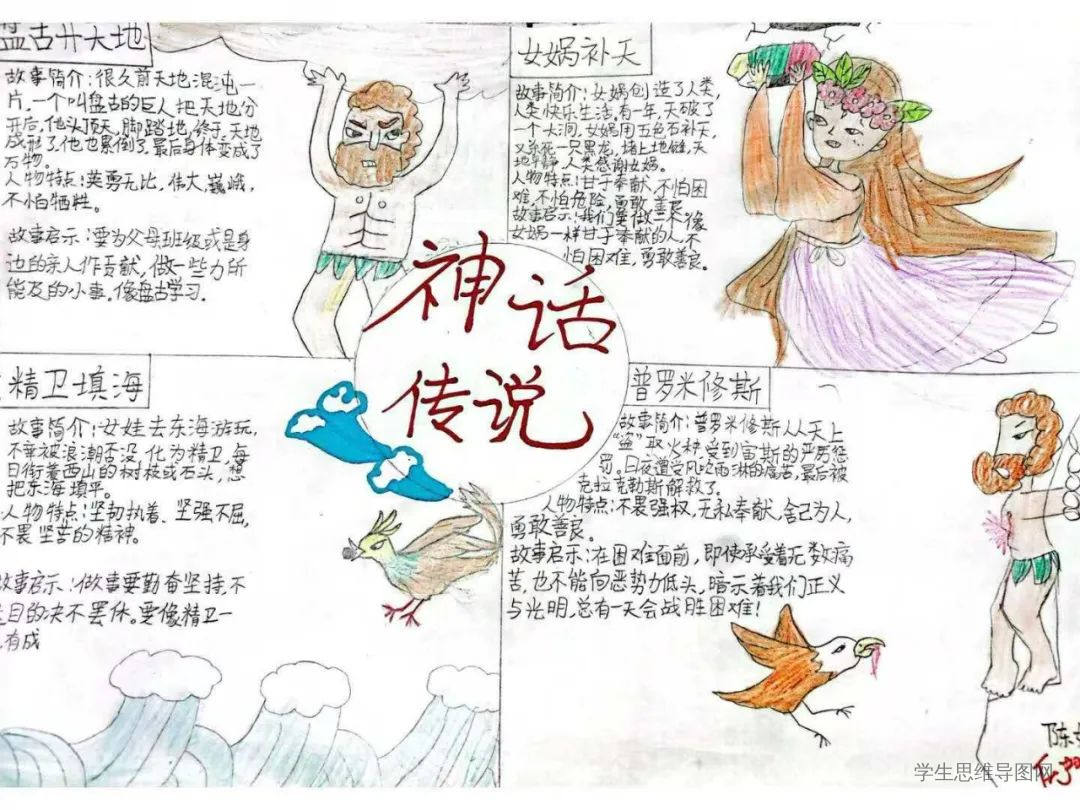 盘古开天地
故事简介:很久前天地混沌一
片。一个叫盘古的巨人把天地分
开后,他头顶天,脚踏地,终于,天地
成形了,他也累倒了。最后身体变成了
万物。
人物特点:英勇无比,伟大,巍峨,
不怕牺牲。
故事启示:要为父母班级或是身
边的亲人作贡献,做一些力所
能及的小事。像盘古学习.
女娲补天
故事简介:女娲创造了人类,
人类快乐生活。有一年,天破了
一个大洞。女娲用五色石补天,
又杀死一只黑龙,堵上地缝,天
地平静,人类感谢女娲。
人物特点:甘于奉献,不怕困
难,不怕危险,勇敢善良
故事启示:我们要做一个像
女娲一样甘于奉献的人,不
怕困难,勇敢善良。
神话
传说
精卫填海
故事简介:女娃去东海游玩,
不幸被浪潮吞没,化为精卫,每
日衔着西山的树枝或石头,想
把东海填平。
人物特点:坚韧执着、坚强不屈,
不畏坚苦的精神。
故事启示:做事要勤奋坚持,不
达目的决不罢休。要像精卫一
有成
普罗米修斯
故事简介:普罗米修斯从人天上
“盗”取火种,受到宙斯的严厉惩
罚。日夜遭受风吹雨淋的痛苦,最后被
克拉克勒斯解救了。
人物特点:不畏强权,无私奉献,舍己为人,
勇敢善良。
故事启示:在困难面前,即使承受着无数痛
苦,也不能向恶势力低头,暗示着我们正义
与光明,总有一天会战胜困难!
陈
学生思维导图网